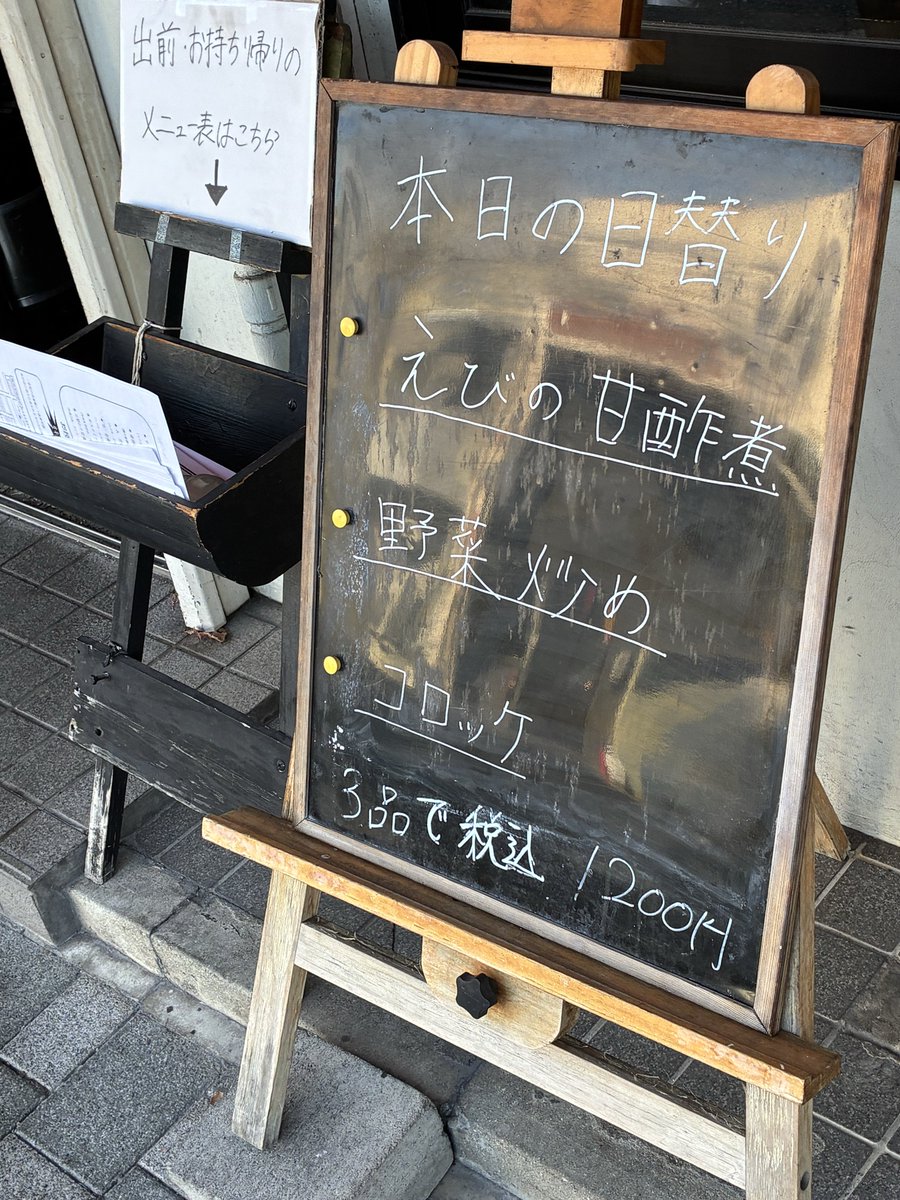 出前・お持ち帰りの
メニュー表はこちら
↓
本日の日替り
えびの甘酢煮
野菜炒め
コロッケ
3品で税込 1200円